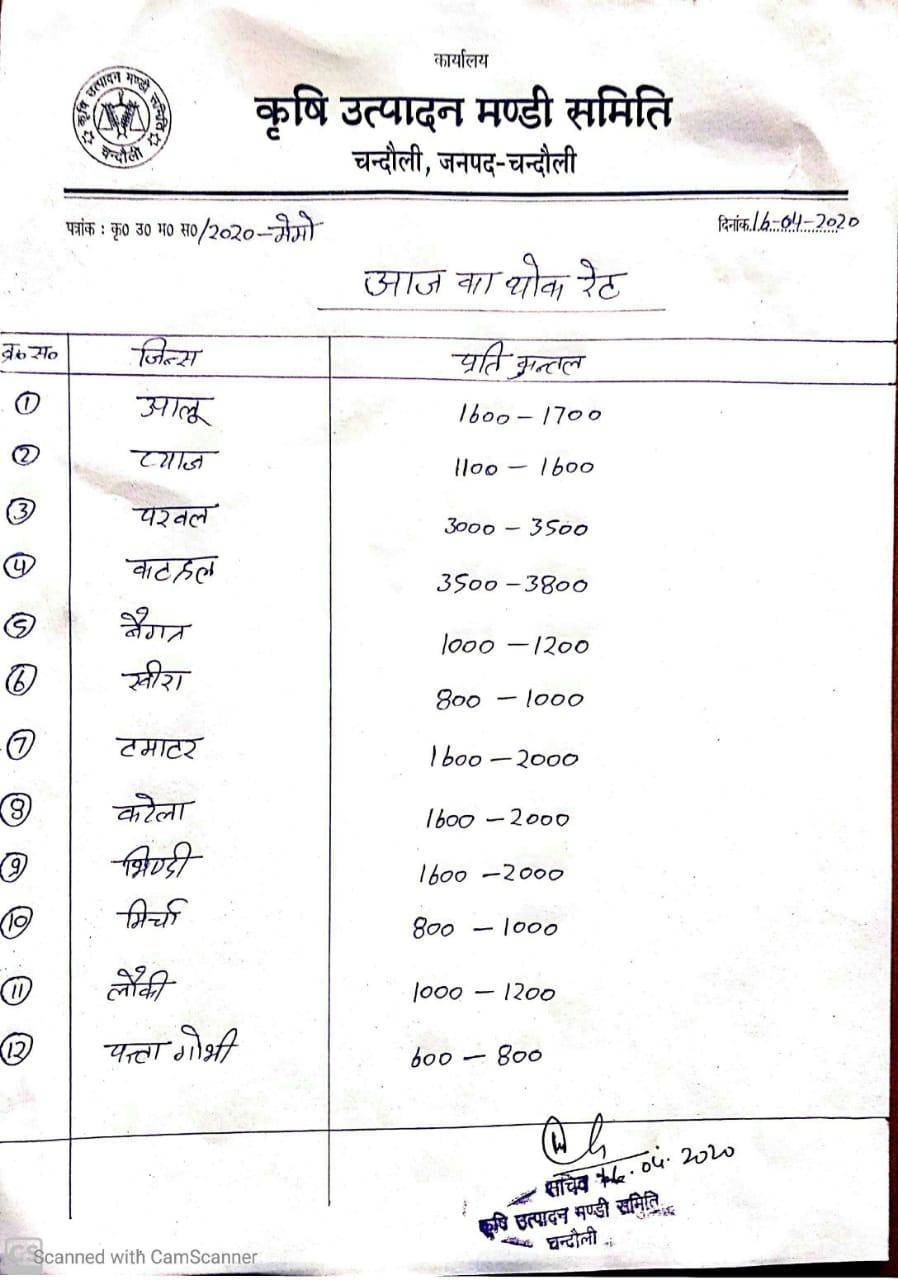 कार्यालय
कृषि उत्पादन मण्डी समिति
चन्दौली, जनपद-चन्दौली
कृषि उत्पादन मण्डी समिति
चन्दौली
पत्रांक : कृ0 उ0 म0 स0/2020-मेमो
दिनांक 16-04-2020
आज का थोक रेट
क्र०स० जिन्स प्रति कुन्तल
1 आलू 1600 - 1700
2 प्याज 1100 - 1600
3 परवल 3000 - 3500
4 कटहल 3500 - 3800
5 बैगन 1000 - 1200
6 खीरा 800 - 1000
7 टमाटर 1600 - 2000
8 करेला 1600 - 2000
9 भिण्डी 1600 - 2000
10 मिर्चा 800 - 1000
11 लौकी 1000 - 1200
12 पत्ता गोभी 600 - 800
सचिव 16.04.2020
कृषि उत्पादन मण्डी समिति
चन्दौली
CS Scanned with CamScanner